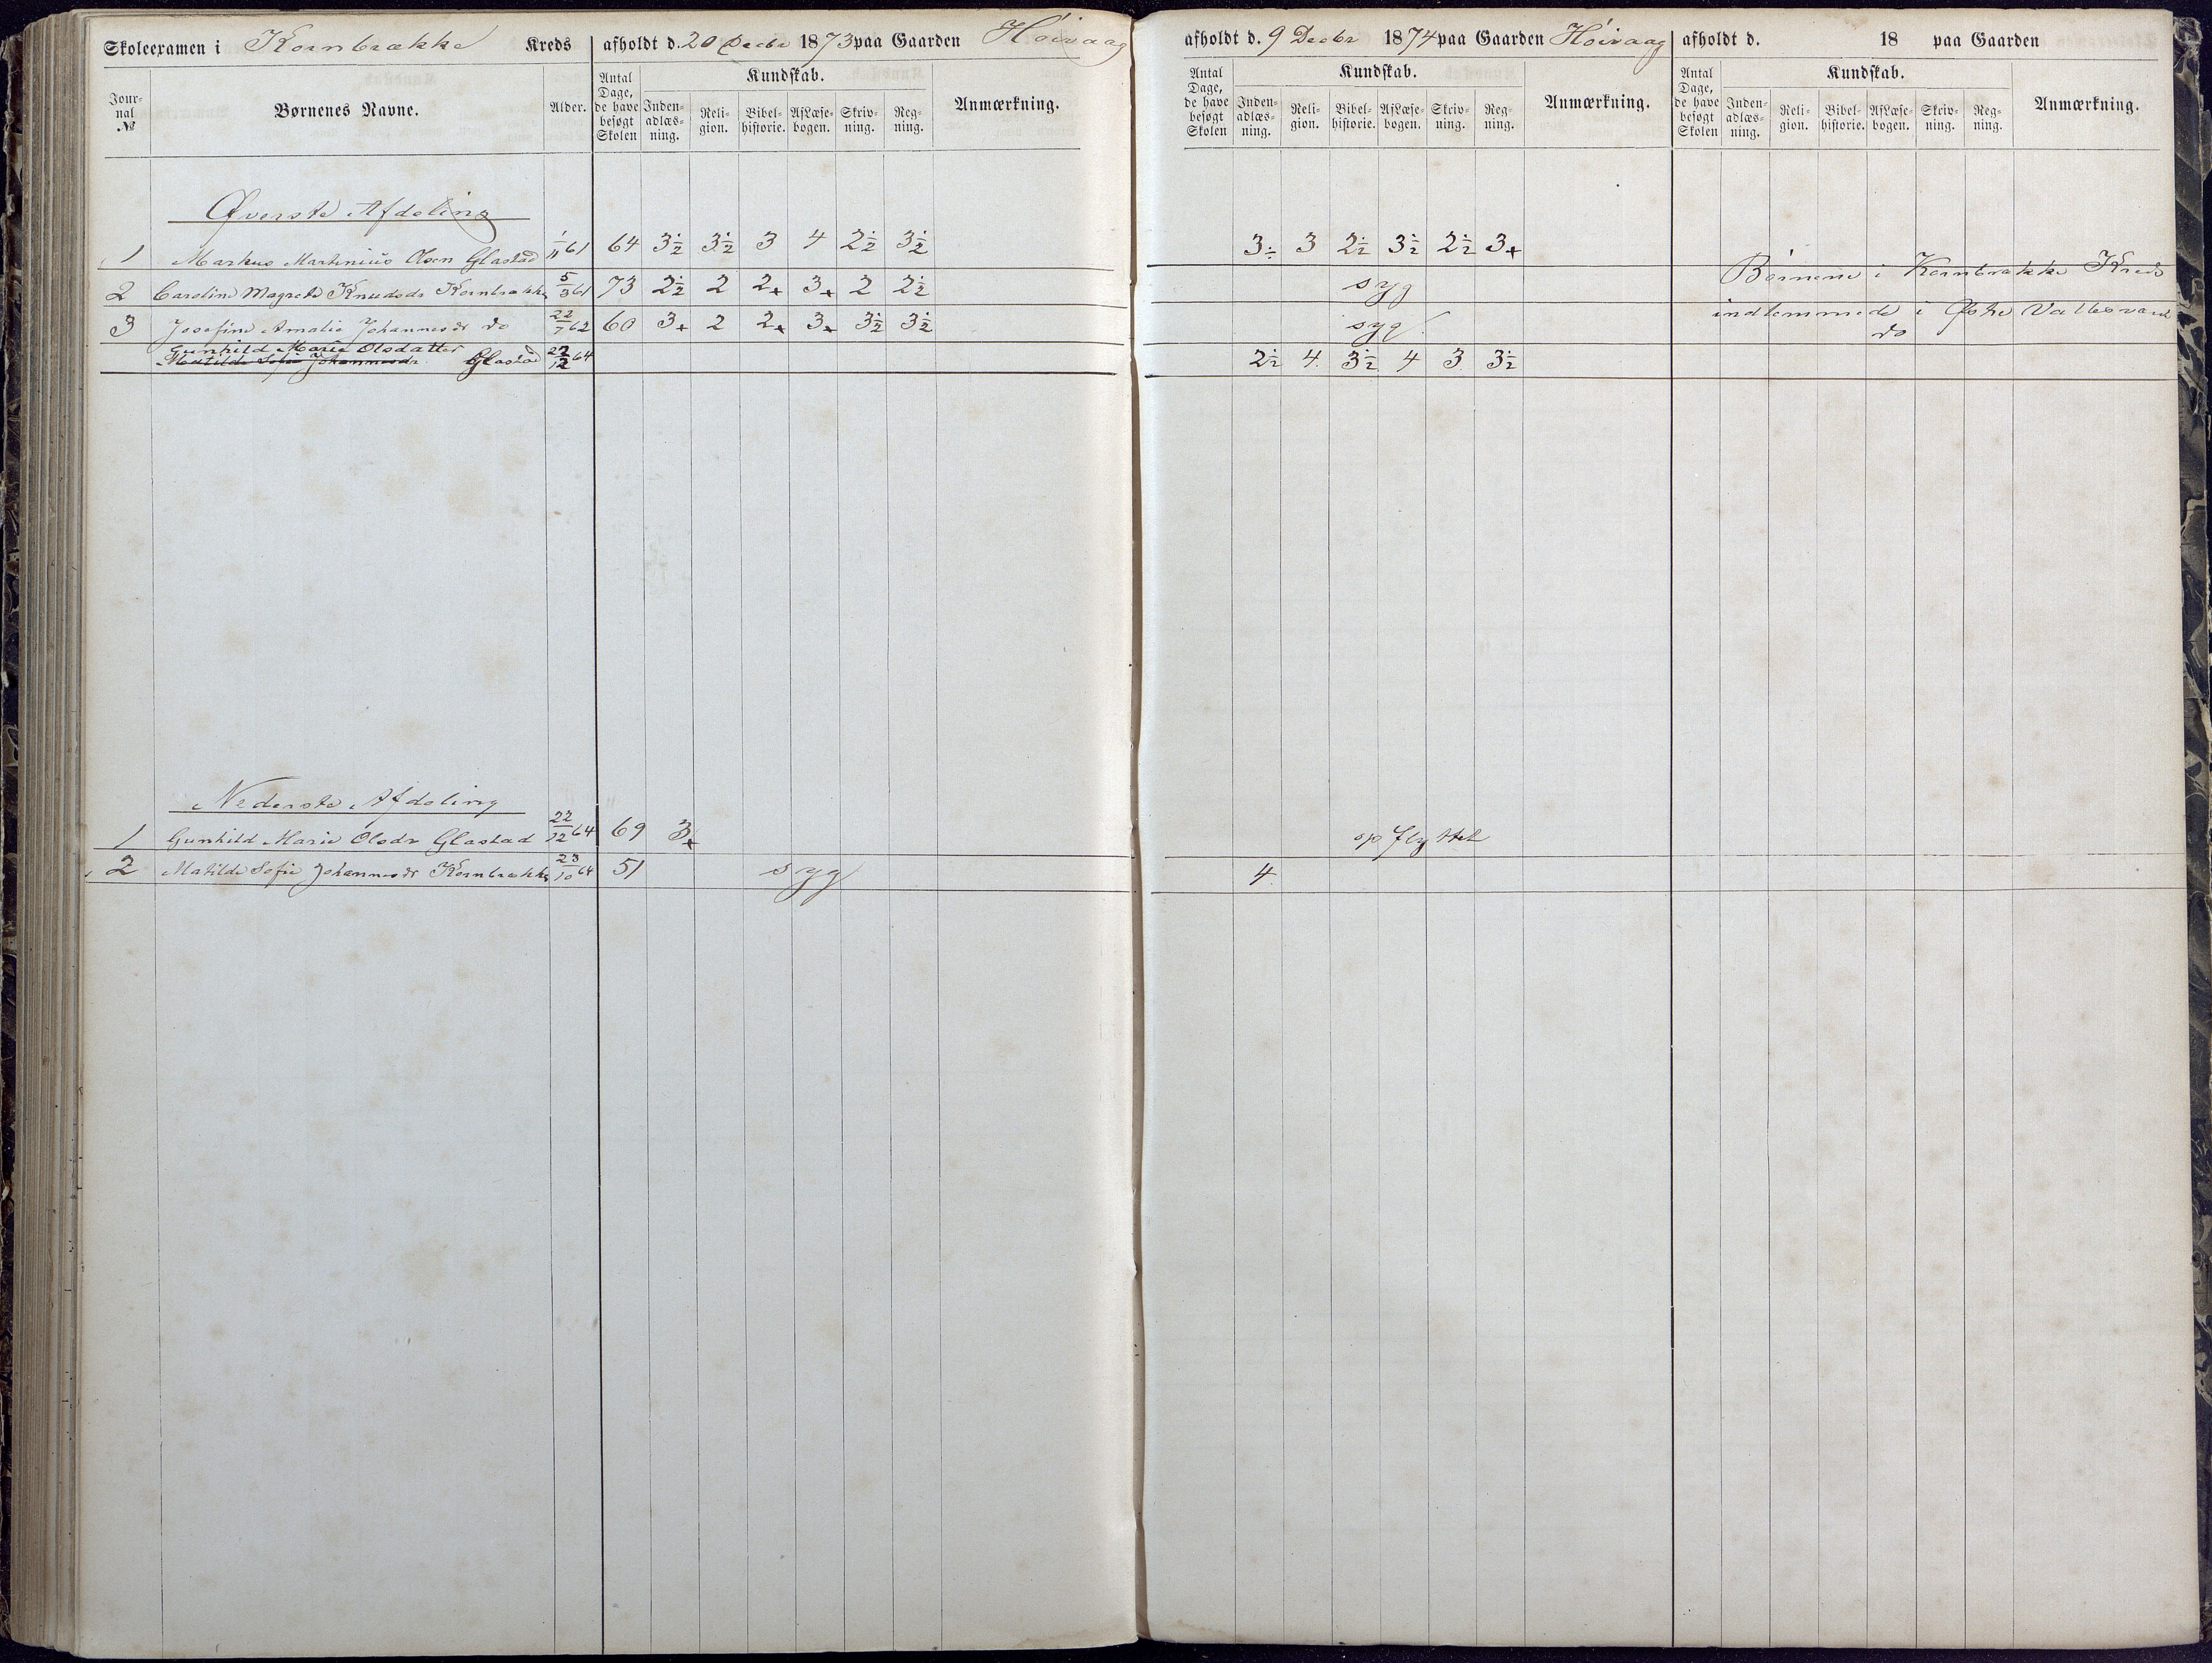 Skoleexamen i Kornbrække Kreds afholdt d. 20 Decbr 1873 paa Gaarden Höivaag
Jour-nal № Børnenes Navne. Alder. Antal Dage, de have besøgt Skolen Kundskab. Inden-adlæs-ning. Reli-gion. Bibel-historie. AfLæse-bogen. Skriv-ning. Reg-ning. Anmærkning.
Øverste Afdeling
1 Markus Martinius Olsen Glastad 1/11 61 64 3½ 3½ 3 4 2½ 3½
2 Caroline Magrete Knudsdr Kornbrække 5/3 61 73 2½ 2 2+ 3+ 2 2½
3 Josefine Amalie Johannesdr do 22/7 62 60 3+ 2 2+ 3+ 3½ 3½
Gunhild Marie Olsdatter
Matilde Sofie Johannesdr Glastad 22/12 64
Nederste Afdeling
1 Gunhild Marie Olsdr Glastad 22/12 64 69 3+
2 Matilde Sofie Johannesdr Kornbrække 23/10 64 51 syg
afholdt d. 9 Decbr 1874 paa Gaarden Höivaag afholdt d. 18 paa Gaarden
Antal Dage, de have besøgt Skolen Kundskab. Inden-adlæs-ning. Reli-gion. Bibel-historie. AfLæse-bogen. Skriv-ning. Reg-ning. Anmærkning.
Antal Dage, de have besøgt Skolen Kundskab. Inden-adlæs-ning. Reli-gion. Bibel-historie. AfLæse-bogen. Skriv-ning. Reg-ning. Anmærkning.
3÷ 3 2½ 3½ 2½ 3+
syg Börnene i Kornbrække Kreds
syg indlemmede i Østre Vallesværd
do
2½ 4 3½ 4 3 3½
opflyttet
4